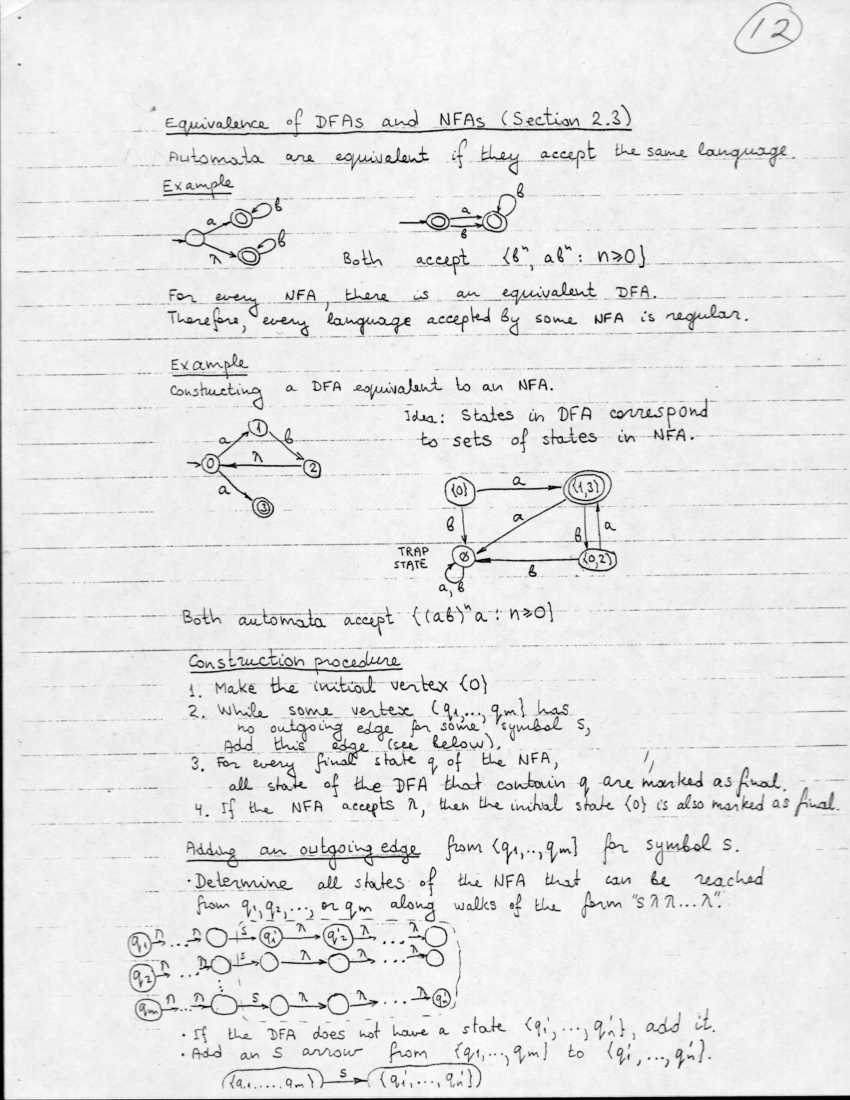 12
Equivalence of DFAs and NFAs (Section 2.3)
Automata are equivalent if they accept the same language.
Example
a b
λ b
a b
b
Both accept {bⁿ, abⁿ : n≥0}
For every NFA, there is an equivalent DFA.
Therefore, every language accepted by some NFA is regular.
Example
Constructing a DFA equivalent to an NFA.
Idea: States in DFA correspond
to sets of states in NFA.
0 a 1 b 2 λ
a 3
{0} a {1,3}
b a b a
TRAP
STATE
∅ b {0,2}
a, b
Both automata accept {(ab)ⁿa : n≥0}
Construction procedure
1. Make the initial vertex {0}
2. While some vertex {q₁,..,qm} has
no outgoing edge for some symbol s,
Add this edge (see below).
3. For every final state q of the NFA,
all state of the DFA that contain q are marked as final.
4. If the NFA accepts λ, then the initial state {0} is also marked as final.
Adding an outgoing edge from {q₁,..,qm} for symbol s.
· Determine all states of the NFA that can be reached
from q₁,q₂,..., or qm along walks of the form "sλλ...λ".
q₁ λ ... λ s q₁' λ q₂' λ ... λ
q₂ λ ... λ s λ λ ... λ
qm λ ... λ s λ λ ... λ qn'
· If the DFA does not have a state {q₁',...,qn'}, add it.
· Add an s arrow from {q₁,...,qm} to {q₁',...,qn'}.
{q₁,...,qm} s {q₁',...,qn'}